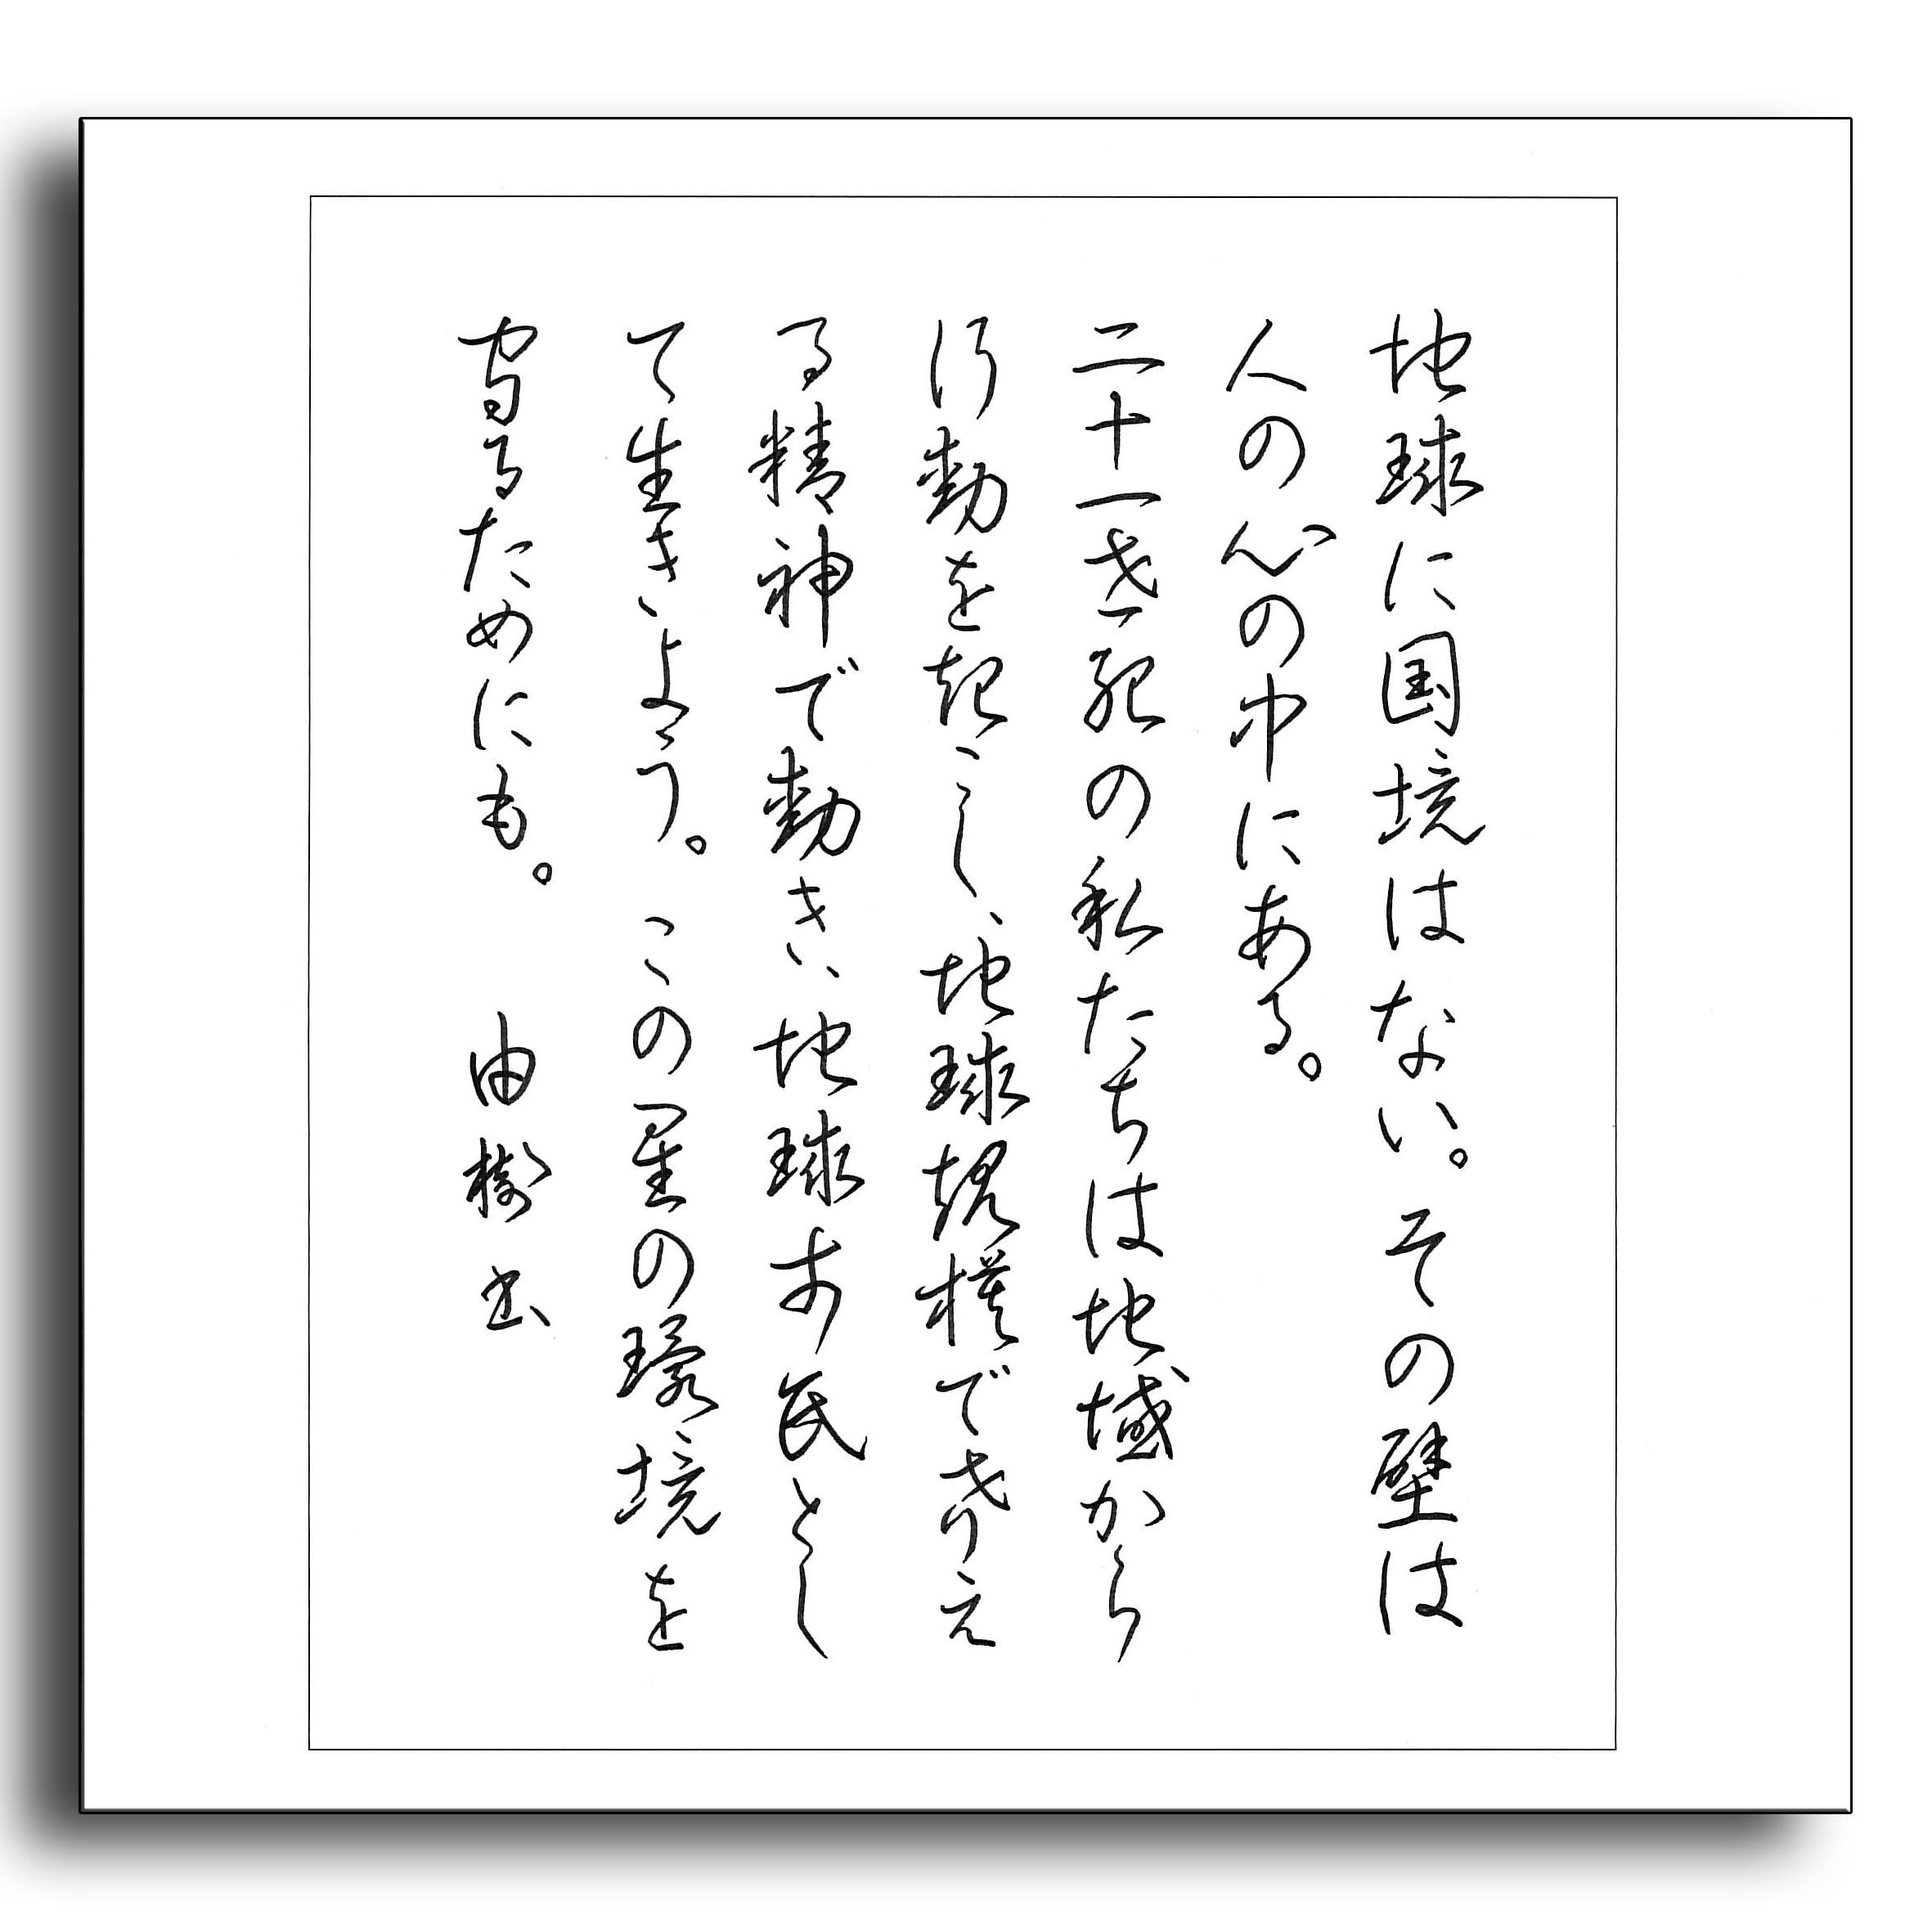 地球に国境はない。その壁は
人の心の中にある。
二十一世紀の私たちは地域から
行動を起こし、地球規模で考え
る精神で動き、地球市民とし
て生きよう。この星の環境を
守るためにも。 由樹書